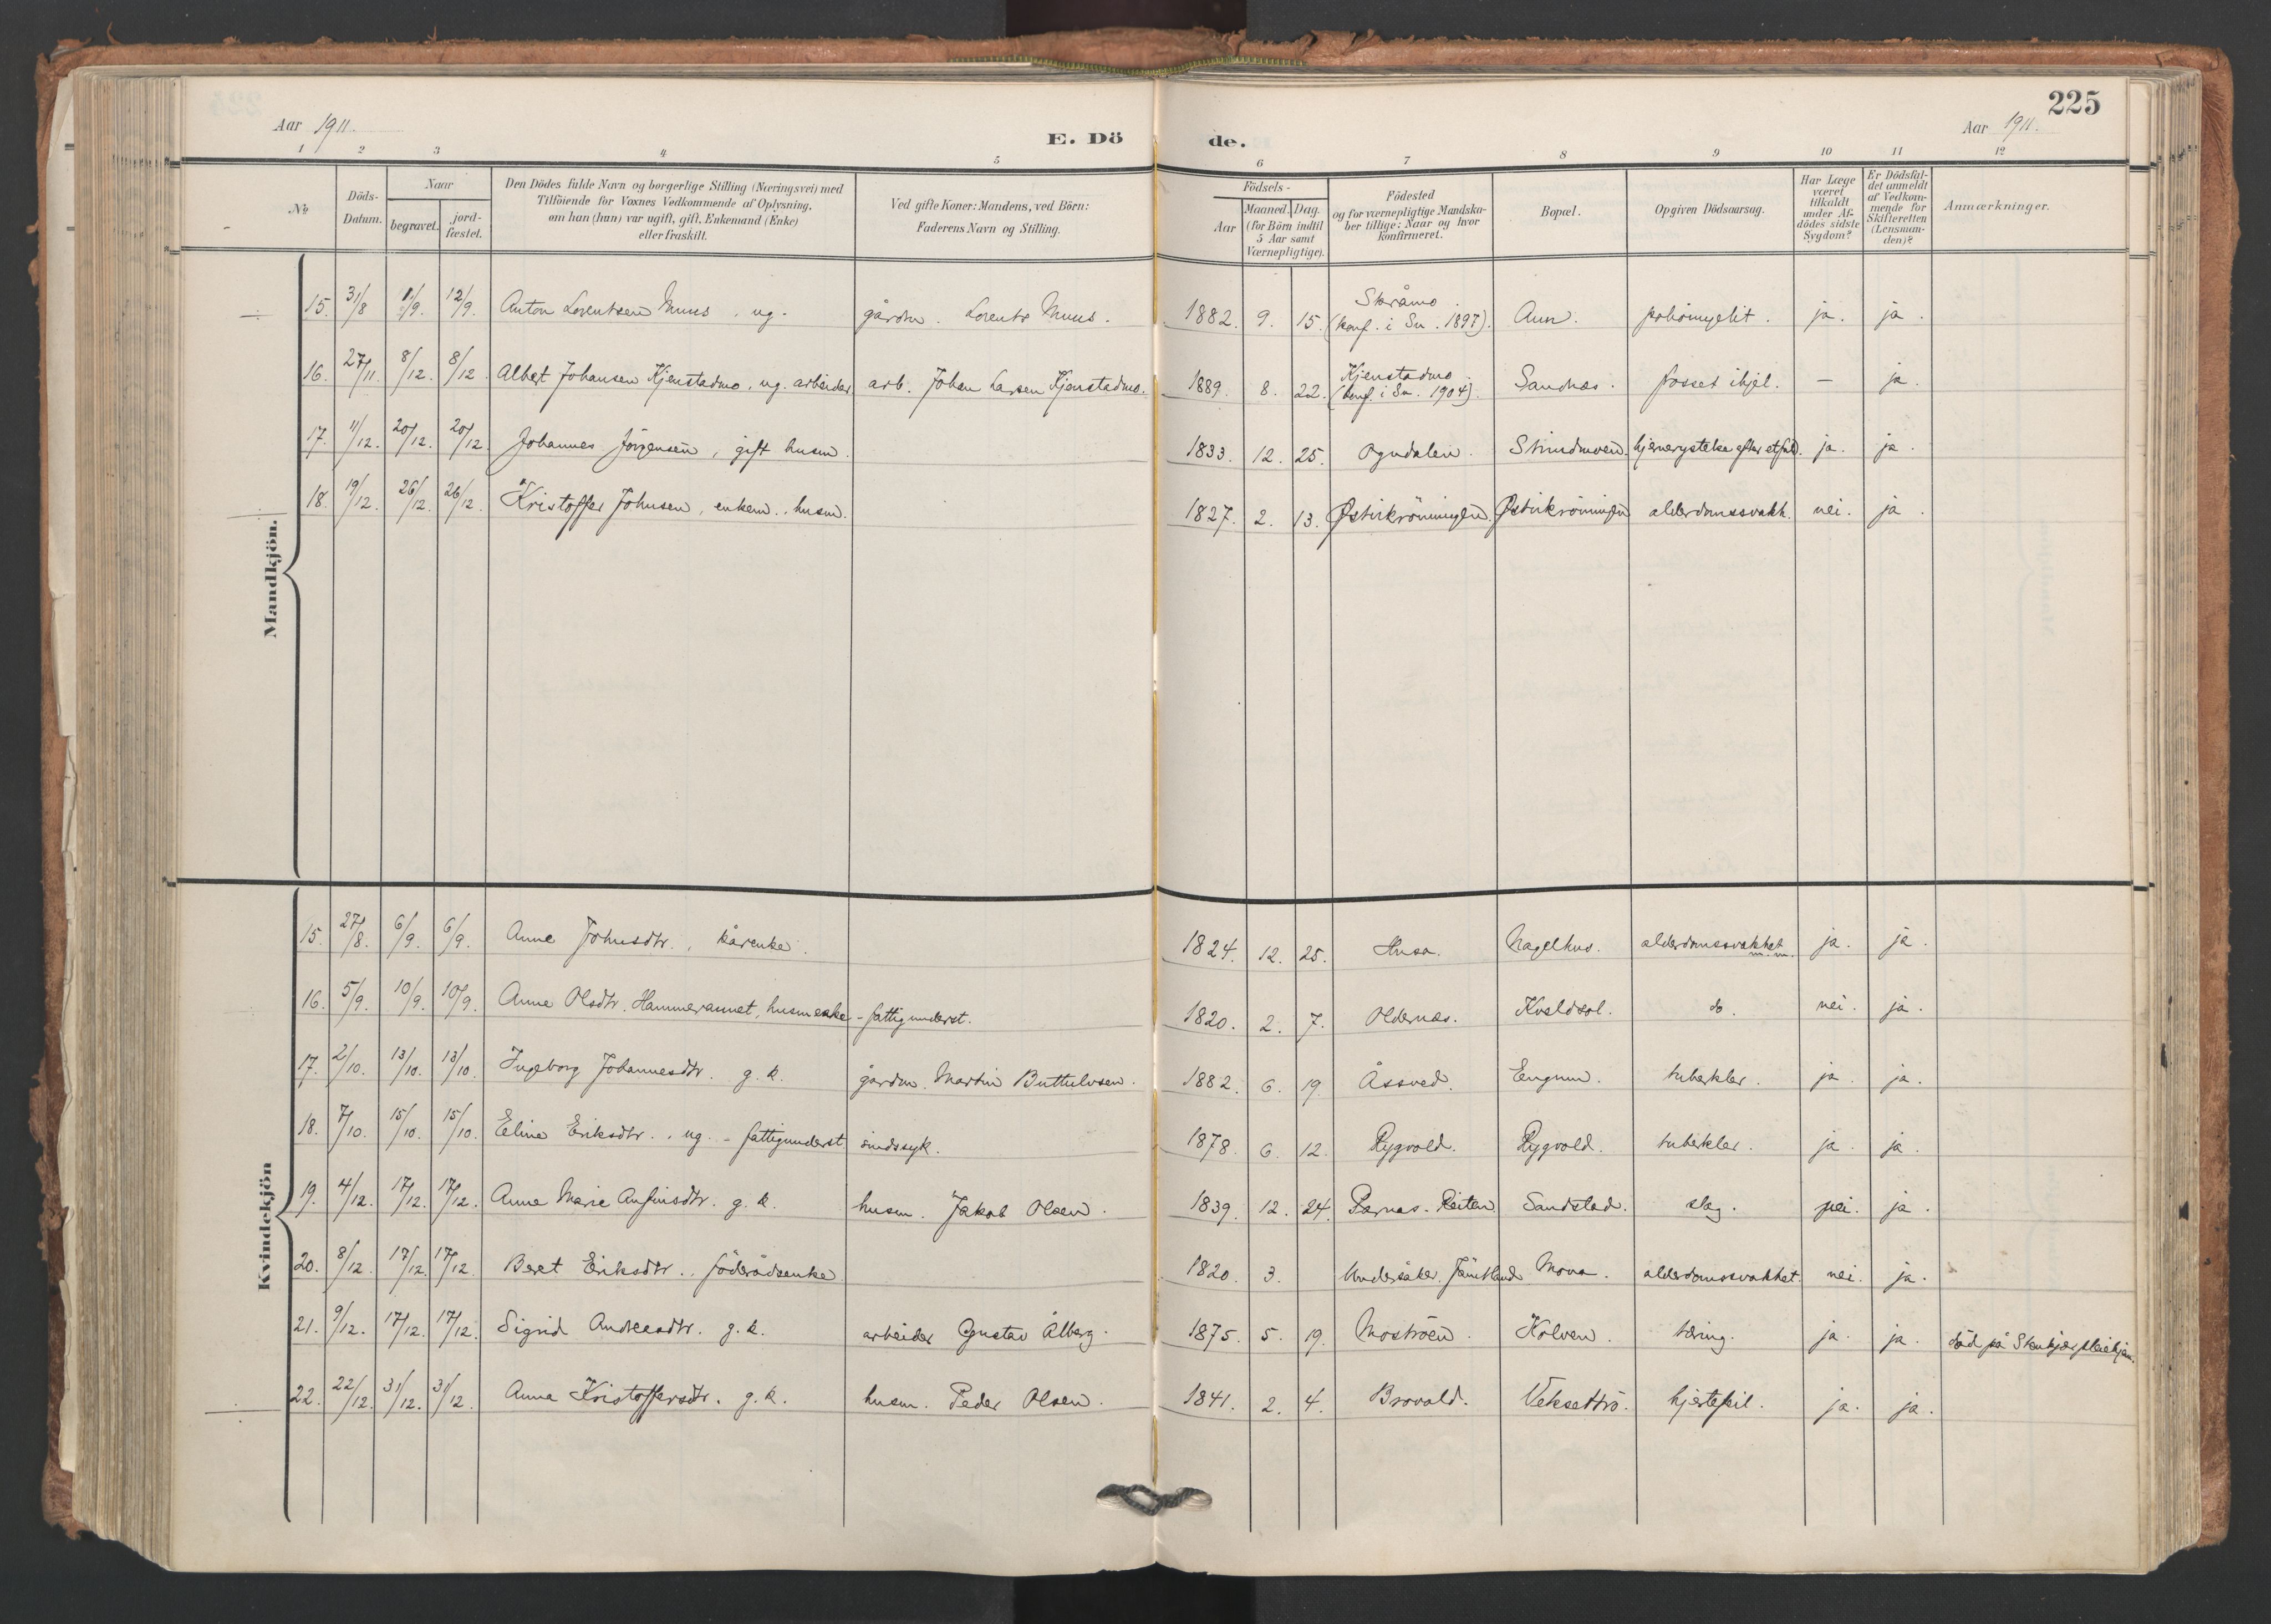 225
Aar 1911.
E. Döde.
Aar 1911.
1 2 3 4 5 6 7 8 9 10 11 12
No
Döds-Datum.
Naar
begravet.
jord-fæstet.
Den Dödes fulde Navn og borgerlige Stilling (Næringsvei) med
Tilföiende for Voxnes Vedkommende af Oplysning,
om han (hun) var ugift, gift, Enkemand (Enke)
eller fraskilt.
Ved gifte Koner: Mandens, ved Börn:
Faderens Navn og Stilling.
Födsels-
Aar
Maaned. Dag.
(for Börn indtil
5 Aar samt
Værnepligtige).
Födested
og for værnepligtige Mandska-
ber tillige: Naar og hvor
konfirmeret.
Bopæl.
Opgiven Dödsaarsag.
Har Læge
været
tilkaldt
under Af-
dödes sidste
Sygdom?
Er Dödsfal-
det anmeldt
af Vedkom-
mende for
Skifteretten
(Lensman-
den)?
Anmærkninger.
Mandkjön.
15. 31/8 1/9. 12/9. Anton Lorentsen Muus, ug. gårdm. Lorents Muus. 1882. 9. 15. Skråmo. (konf. i Sn. 1897). Aun. poliomyelit. ja. ja.
16. 27/11. 8/12. 8/12. Albert Johansen Kjenstadmo, ug. arbeider arb. Johan Larsen Kjenstadmo. 1889. 8. 22. Kjenstadmo (konf. i Sn. 1904). Sandnæs. fosset ihjel. — ja.
17. 11/12. 20/12. 20/12 Johannes Jörgensen, gift husm. 1833. 12. 25. Ogndalen. hjernerystelse efter et fald. ja. ja.
18. 19/12. 26/12. 26/12. Kristoffer Johnsen, enkem., husm. 1827. 2. 13. Østvikröningen. Østvikröningen alderdomssvakh. nei. ja.
Kvindekjön
15. 27/8. 6/9. 6/9. Anne Johnsdtr., kårenke. 1824. 12. 25. Husa. Nagelhus. alderdomssvakhet m.m. ja. ja.
16. 5/9. 10/9. 10/9. Anne Olsdtr. Hammeraunet, husmenke - fattigunderst. 1820. 2. 7. Oldernæs. Kveldsol. do. nei. ja.
17. 2/10. 13/10. 13/10. Ingeborg Johannesdtr. g.k. gårdm. Martin Buttulvsen. 1882. 6. 19. Åssved. Engum. tuberkler. ja. ja.
18. 7/10. 15/10. 15/10. Eline Eriksdtr., ug. - fattigunderst sindssyk. 1878. 6. 12. Rygvold. Rygvold. tuberkler. ja. ja.
19. 4/12. 17/12. 17/12. Anne Marie Anfinsdtr. g.k. husm. Jakob Olsen. 1839. 12. 24. Parnas-Reiten Sandstad. slag. nei. ja.
20. 8/12. 17/12. 17/12. Beret Eriksdtr., föderådsenke 1820. 3. Undersåker. Jämtland Mona. alderdomssvakhet. nei. ja.
21. 9/12. 17/12. 17/12. Sigrid Andreasdtr. g.k. arbeider Gustav Ålberg. 1875. 5. 19. Moströen. Holven. tæring. ja. ja. död på Stenkjær pleiehjem.
22. 22/12. 31/12. 31/12. Anna Kristoffersdtr. g.k. husm. Peder Olsen. 1841. 2. 4. Brovold. Veksettrö. hjertefeil. ja. ja.